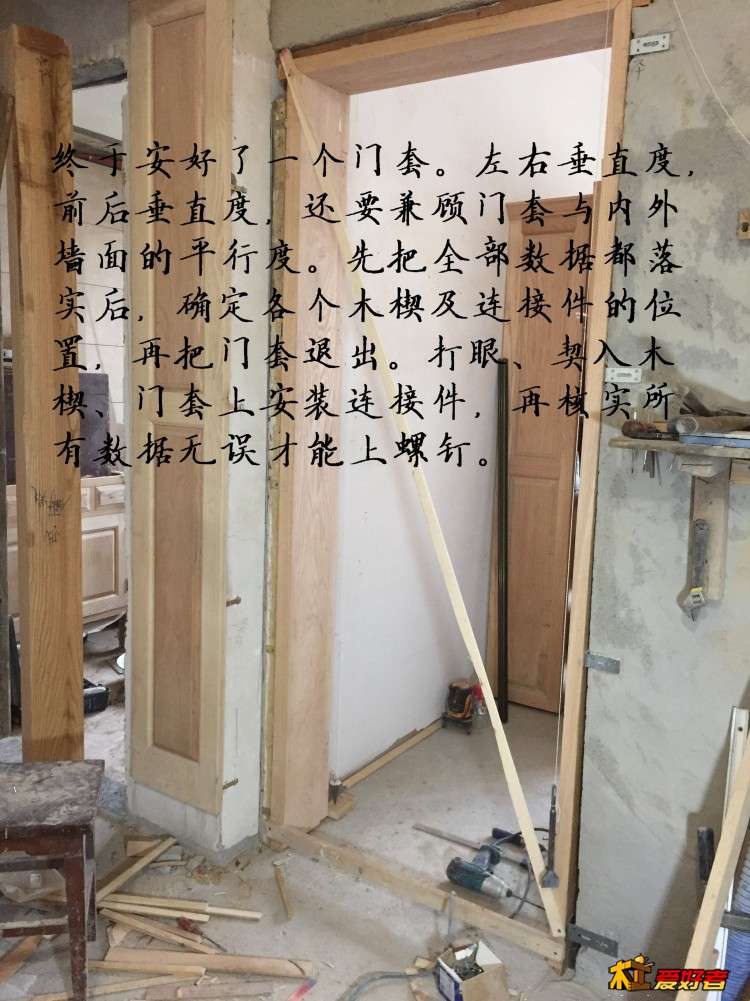 终于安好了一个门套。左右垂直度，
前后垂直度，还要兼顾门套与内外
墙面的平行度。先把全部数据都落
实后，确定各个木楔及连接件的位
置，再把门套退出。打眼、契入木
楔、门套上安装连接件，再核实所
有数据无误才能上螺钉。
木工爱好者